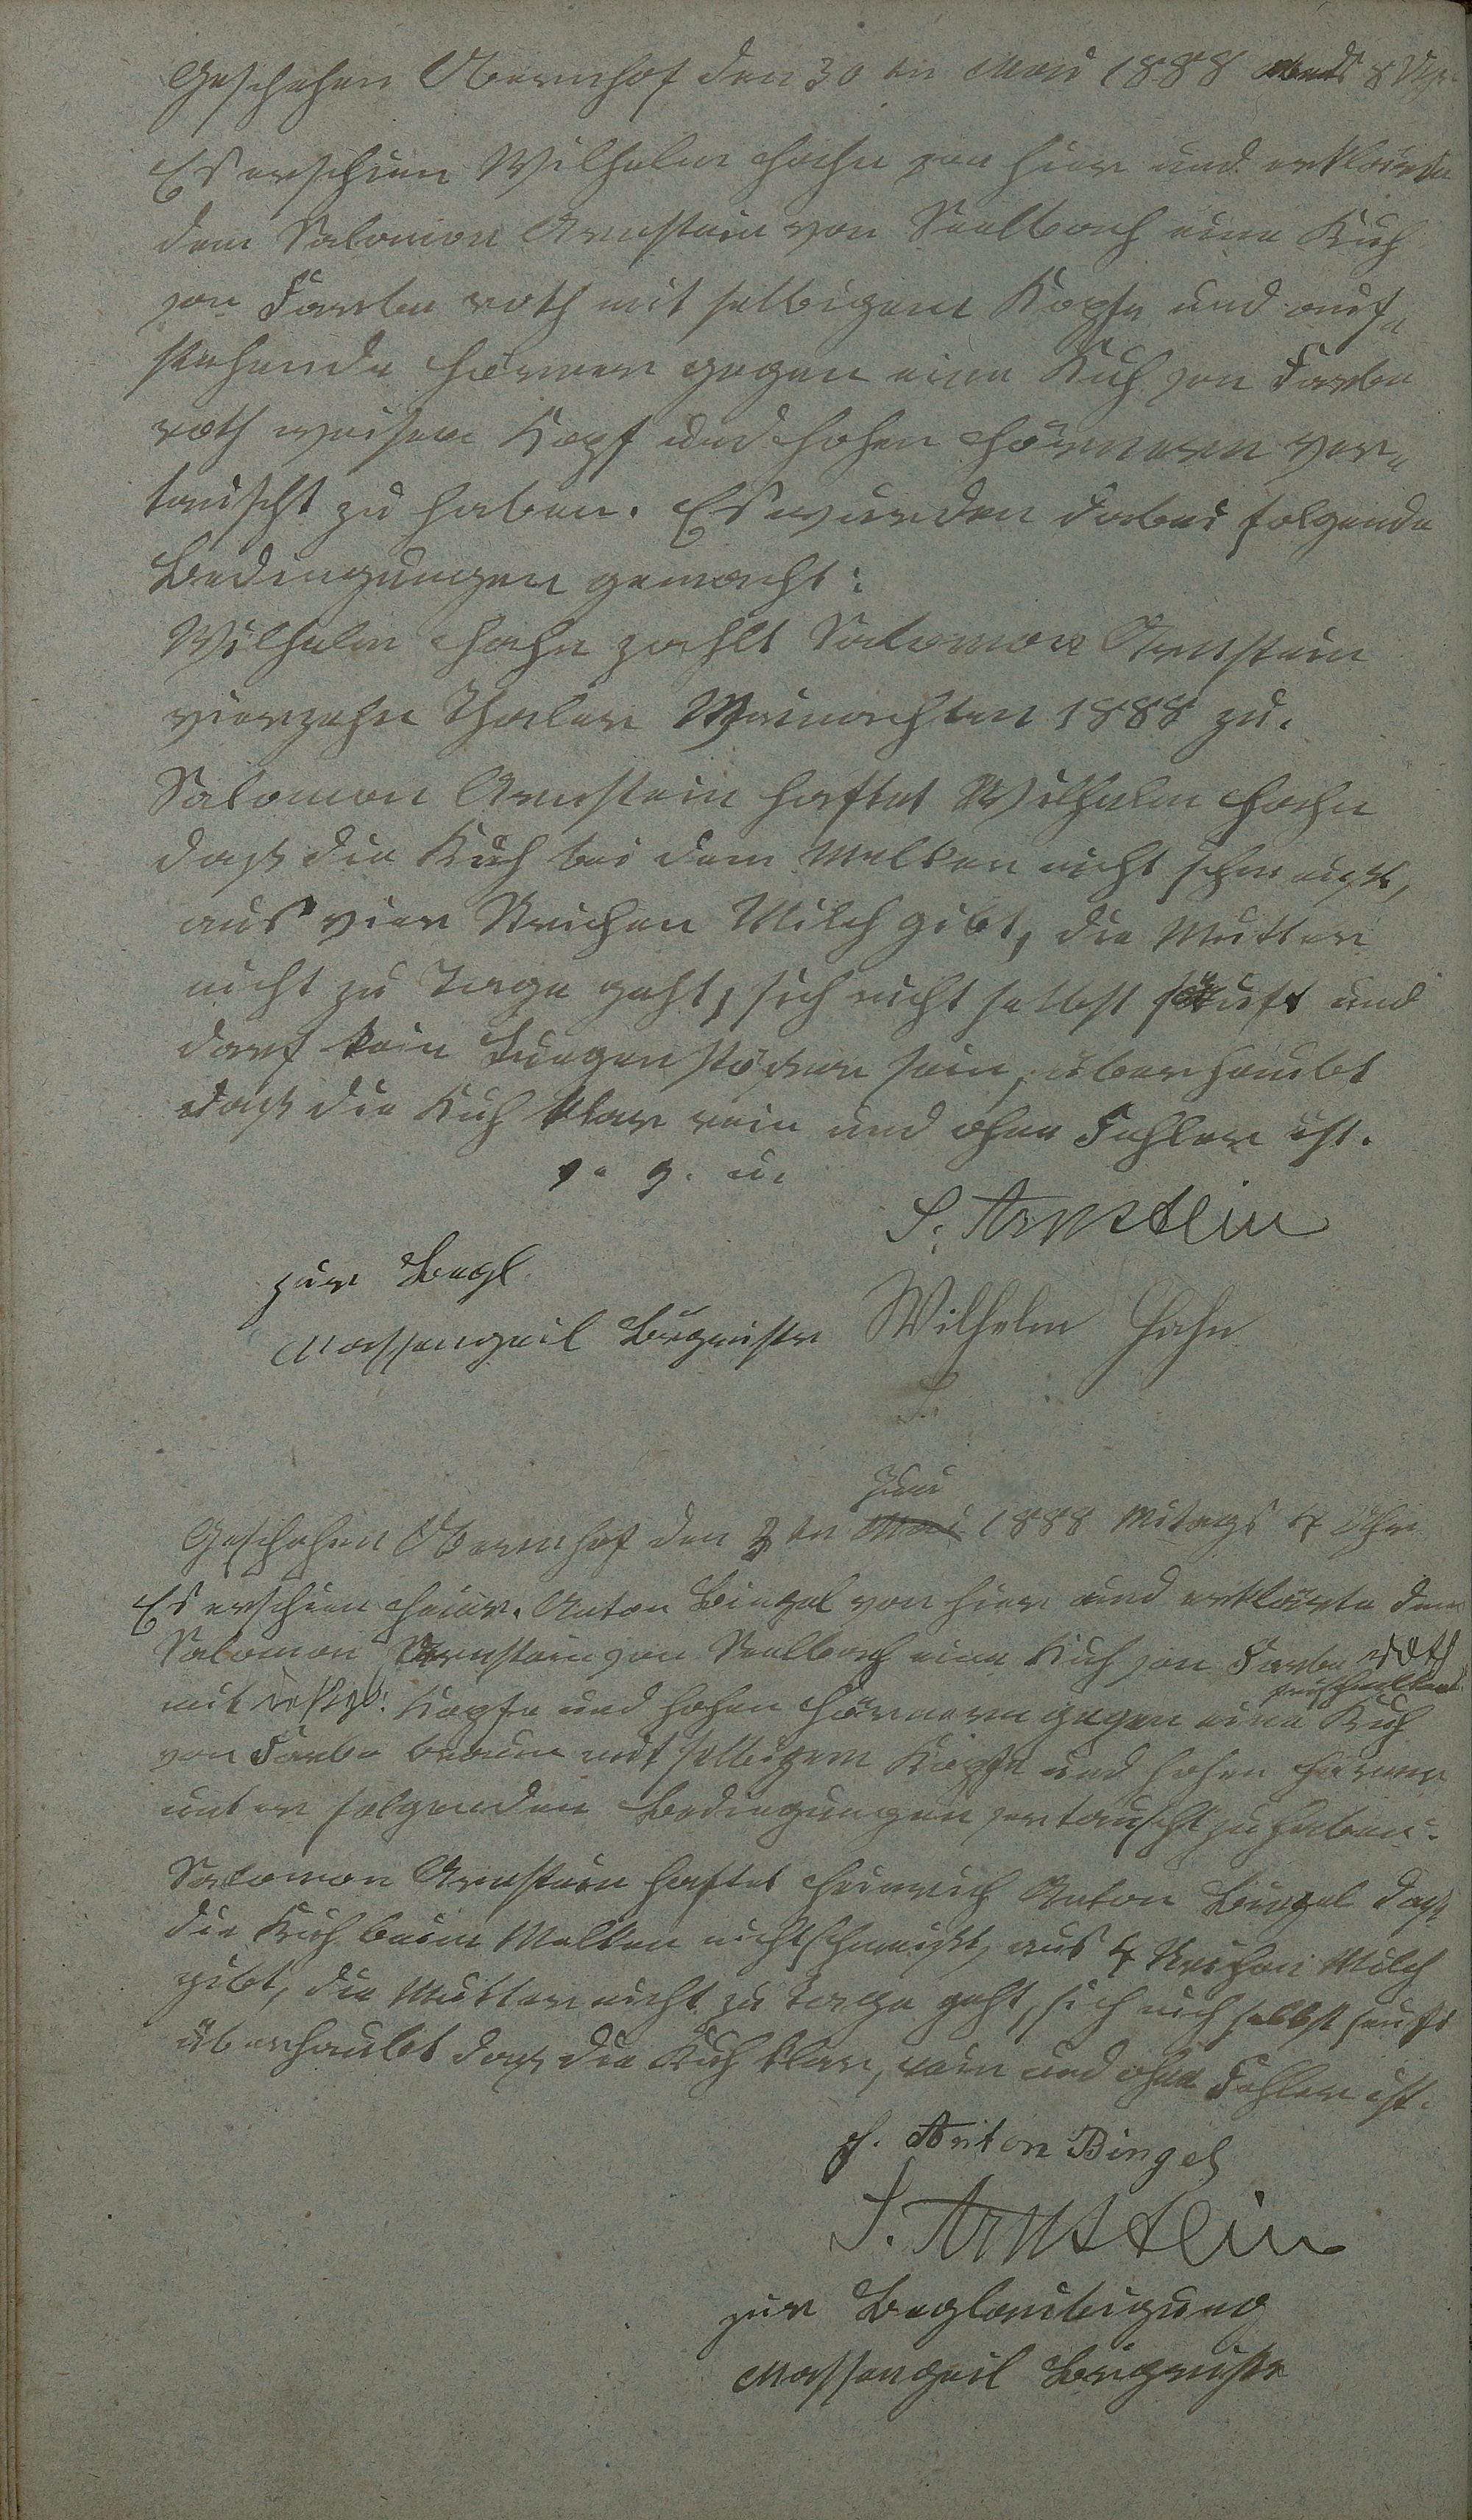 Geschehen Obernhof den 30 ten Mai 1888 abends 8 Uhr
Es erschien Wilhelm Hahn von hier und erklärte
dem Salomon Arnstein von Seelbach eine Kuh
von Farbe roth mit selbigem Kopfe und auf-
stehende Hörner gegen eine Kuh von Farbe
roth weisen Kopf und hohen Hörnern ver-
tauscht zu haben. Es wurden dabei folgende
Bedingungen gemacht:
Wilhelm Hahn zahlt Salomon Arnstein
vierzehn Thaler Weinachten 1888 zu.
Salomon Arnstein haftet Wilhelm Hahn
daß die Kuh bei dem Melken nicht schmeißt,
aus vier Strichen Milch gibt, die Mutter
nicht zu Tage geht, sich nicht selbst säuft und
darf kein Zungenstößer sein, überhaubt
daß die Kuh klar rein und ohne Fehler ist.
v. g. u.
S. Arnstein
zur Begl.
Massengeil Bürgmstr Wilhelm Hahn
Juni
Geschehen Obernhof den 2 ten Mai 1888 Mitags 4 Uhr
Es erschien Heinr. Anton Bingel von hier und erklärte dem
Salomon Arnstein von Seelbach eine Kuh von Farbe roth
mit Kopfe und hohen Hörnern gegen eine Kuh
von Farbe braun mit selbigem Kopfe und hohen Hörner
unter folgenden Bedingungen vertauscht zu haben:
Salomon Arnstein haftet Heinrich Anton Bingel daß
die Kuh beim Melken nicht schmeißt, aus 4 Strichen Milch
gibt, die Mutter nicht zu Tage geht, sich nich selbst säuft
überhaubt daß die Kuh klar, rein und ohne Fehler ist.
H. Anton Bingel
S. Arnstein
zur Beglaubigung
Massengeil Bürgmstr